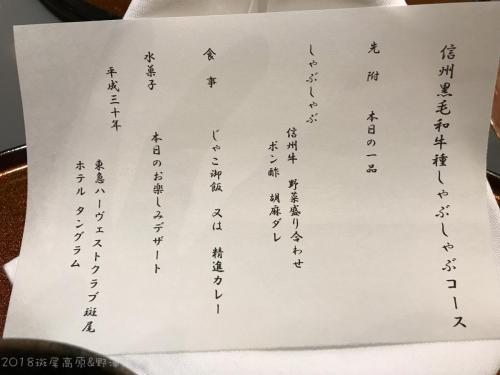 信州黒毛和牛種しゃぶしゃぶコース
先附 本日の一品
しゃぶしゃぶ
信州牛 野菜盛り合わせ
ポン酢 胡麻ダレ
食事 じゃこ御飯 又は 精進カレー
水菓子 本日のお楽しみデザート
平成三十年
東急ハーヴェストクラブ斑尾
ホテル タングラム
2018斑尾高原&野